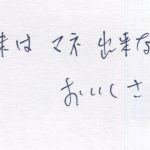 味は マネ 出来な
おいしさ